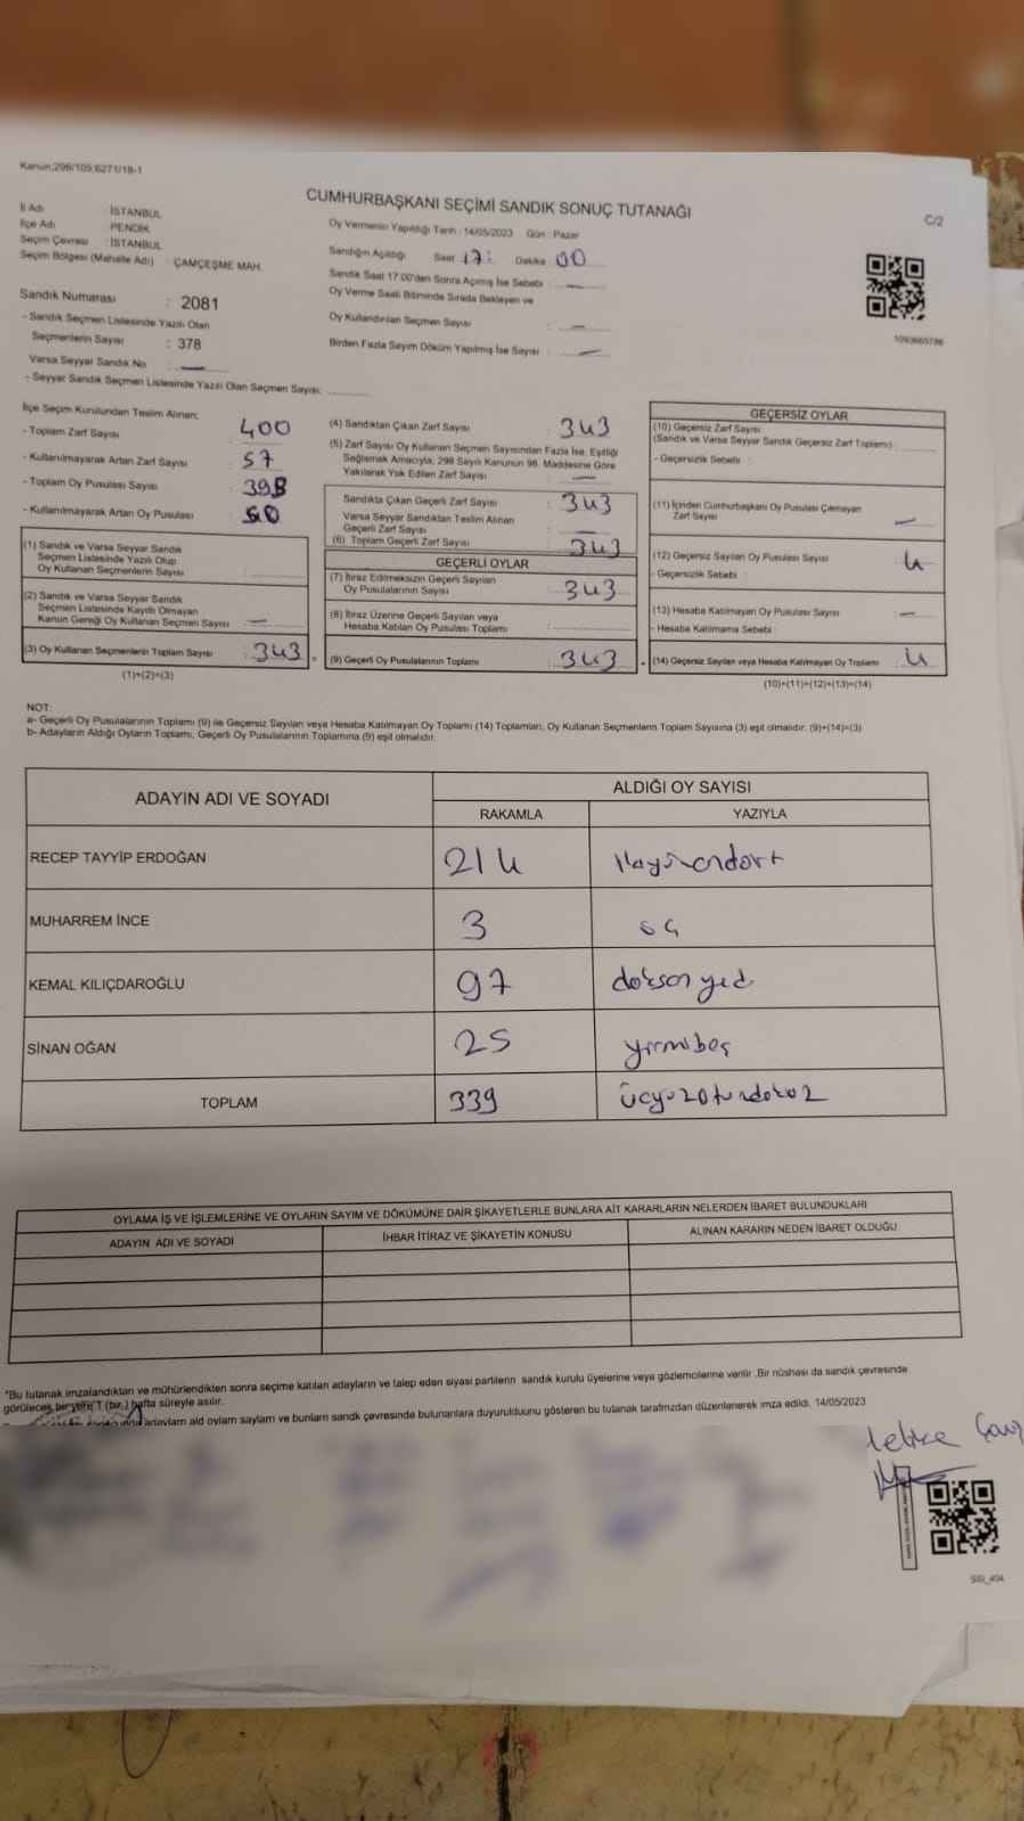 Kanun;298/105,6271/18-1
CUMHURBAŞKANI SEÇİMİ SANDIK SONUÇ TUTANAĞI
C/2
İl Adı : İSTANBUL
İlçe Adı : PENDİK
Seçim Çevresi : İSTANBUL
Seçim Bölgesi (Mahalle Adı) : ÇAMÇEŞME MAH.
Sandık Numarası : 2081
- Sandık Seçmen Listesinde Yazılı Olan
Seçmenlerin Sayısı : 378
Varsa Seyyar Sandık No : —
- Seyyar Sandık Seçmen Listesinde Yazılı Olan Seçmen Sayısı:
Oy Vermenin Yapıldığı Tarih : 14/05/2023 Gün : Pazar
Sandığın Açıldığı Saat 17: Dakika 00
Sandık Saat 17.00'den Sonra Açılmış İse Sebebi : —
Oy Verme Saati Bitiminde Sırada Bekleyen ve
Oy Kullandırılan Seçmen Sayısı : —
Birden Fazla Sayım Döküm Yapılmış İse Sayısı : —
İlçe Seçim Kurulundan Teslim Alınan;
- Toplam Zarf Sayısı : 400
- Kullanılmayarak Artan Zarf Sayısı : 57
- Toplam Oy Pusulası Sayısı : 398
- Kullanılmayarak Artan Oy Pusulası :
(1) Sandık ve Varsa Seyyar Sandık
Seçmen Listesinde Yazılı Olup
Oy Kullanan Seçmenlerin Sayısı :
(2) Sandık ve Varsa Seyyar Sandık
Seçmen Listesinde Kayıtlı Olmayan
Kanun Gereği Oy Kullanan Seçmen Sayısı : —
(3) Oy Kullanan Seçmenlerin Toplam Sayısı : 343
(1)+(2)=(3)
(4) Sandıktan Çıkan Zarf Sayısı : 343
(5) Zarf Sayısı Oy Kullanan Seçmen Sayısından Fazla İse, Eşitliği
Sağlamak Amacıyla, 298 Sayılı Kanunun 98. Maddesine Göre
Yakılarak Yok Edilen Zarf Sayısı : —
Sandıkta Çıkan Geçerli Zarf Sayısı : 343
Varsa Seyyar Sandıktan Teslim Alınan
Geçerli Zarf Sayısı : —
(6) Toplam Geçerli Zarf Sayısı : 343
GEÇERLİ OYLAR
(7) İtiraz Edilmeksizin Geçerli Sayılan
Oy Pusulalarının Sayısı : 343
(8) İtiraz Üzerine Geçerli Sayılan veya
Hesaba Katılan Oy Pusulası Toplamı :
(9) Geçerli Oy Pusulalarının Toplamı : 343
GEÇERSİZ OYLAR
(10) Geçersiz Zarf Sayısı
(Sandık ve Varsa Seyyar Sandık Geçersiz Zarf Toplamı)
- Geçersizlik Sebebi :
(11) İçinden Cumhurbaşkanı Oy Pusulası Çıkmayan
Zarf Sayısı : —
(12) Geçersiz Sayılan Oy Pusulası Sayısı : 4
- Geçersizlik Sebebi :
(13) Hesaba Katılmayan Oy Pusulası Sayısı : —
- Hesaba Katılmama Sebebi :
(14) Geçersiz Sayılan veya Hesaba Katılmayan Oy Toplamı : 4
(10)+(11)+(12)+(13)=(14)
NOT:
a- Geçerli Oy Pusulalarının Toplamı (9) ile Geçersiz Sayılan veya Hesaba Katılmayan Oy Toplamı (14) Toplamları, Oy Kullanan Seçmenlerin Toplam Sayısına (3) eşit olmalıdır. (9)+(14)=(3)
b- Adayların Aldığı Oyların Toplamı, Geçerli Oy Pusulalarının Toplamına (9) eşit olmalıdır.
ADAYIN ADI VE SOYADI ALDIĞI OY SAYISI
RAKAMLA YAZIYLA
RECEP TAYYİP ERDOĞAN 214
MUHARREM İNCE 3 üç
KEMAL KILIÇDAROĞLU 97 doksan yedi
SİNAN OĞAN 25 yirmibeş
TOPLAM 339 üçyüzotuzdokuz
OYLAMA İŞ VE İŞLEMLERİNE VE OYLARIN SAYIM VE DÖKÜMÜNE DAİR ŞİKAYETLERLE BUNLARA AİT KARARLARIN NELERDEN İBARET BULUNDUKLARI
ADAYIN ADI VE SOYADI İHBAR İTİRAZ VE ŞİKAYETİN KONUSU ALINAN KARARIN NEDEN İBARET OLDUĞU
*Bu tutanak imzalandıktan ve mühürlendikten sonra seçime katılan adayların ve talep eden siyasi partilerin sandık kurulu üyelerine veya gözlemcilerine verilir. Bir nüshası da sandık çevresinde
görülecek bir yere 1 (bir) hafta süreyle asılır.
adayların ald oyların sayları ve bunların sandk çevresinde bulunanlara duyurulduunu gösteren bu tutanak tarafmzdan düzenlenerek imza edildi. 14/05/2023